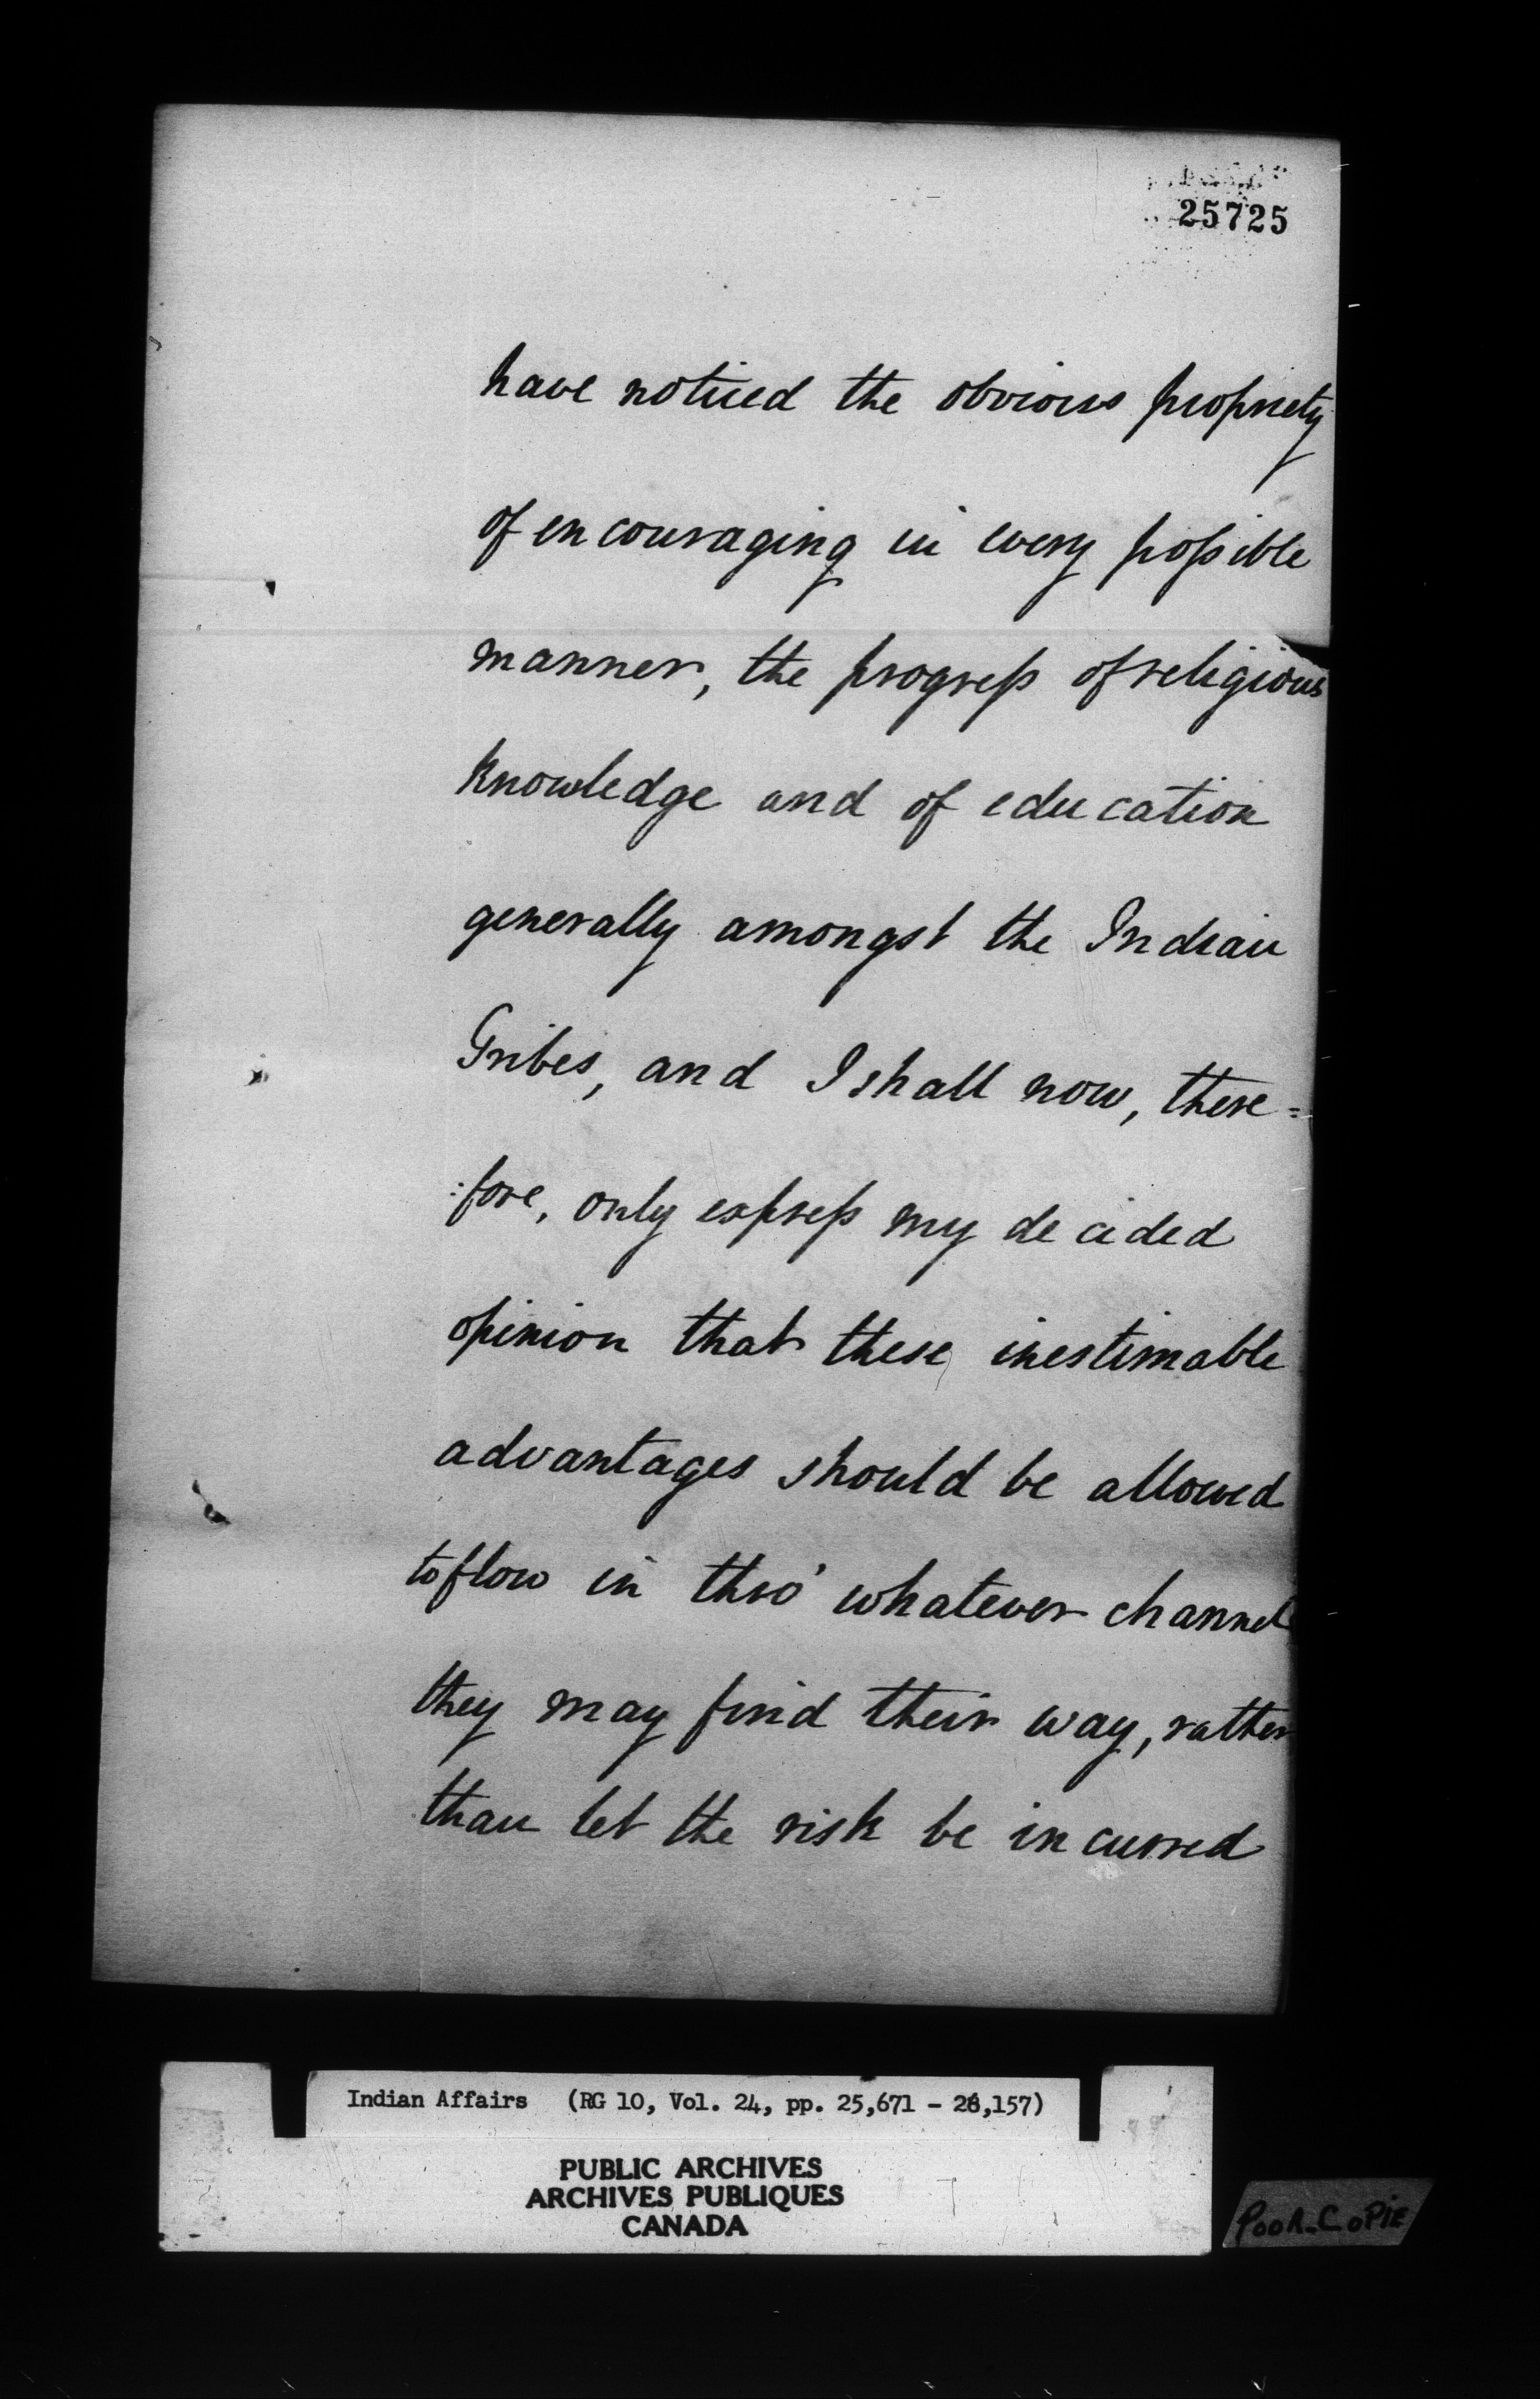 25725
have noticed the obvious propriety
of encouraging in every possible
manner, the progress of religious
knowledge and of education
generally amongst the Indian
Tribes, and I shall now, there=
:fore, only express my decided
opinion that these inestimable
advantages should be allowed
to flow in thro' whatever channel
they may find their way, rather
than let the risk be incurred
Indian Affairs (RG 10, Vol. 24, pp. 25,671 - 26,157)
PUBLIC ARCHIVES
ARCHIVES PUBLIQUES
CANADA
POOR COPIE